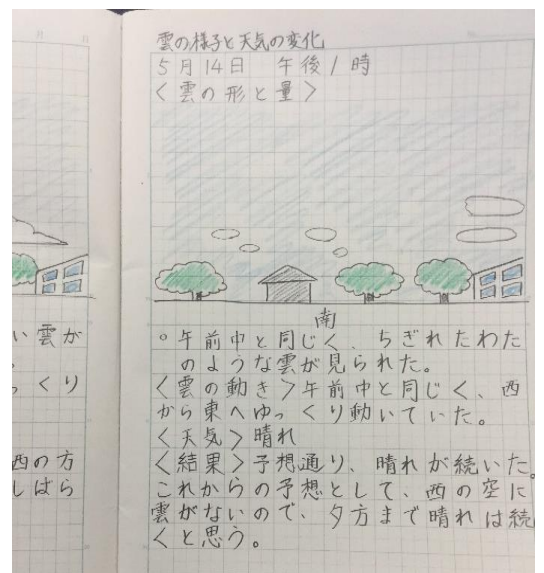 い雲が
っくり
西の方
しばら
雲の様子と天気の変化
5月14日 午後1時
〈雲の形と量〉
南
。午前中と同じく、ちぎれたわた
のような雲が見られた。
〈雲の動き〉午前中と同じく、西
から東へゆっくり動いていた。
〈天気〉晴れ
〈結果〉予想通り、晴れが続いた。
これからの予想として、西の空に
雲がないので、夕方まで晴れは続
くと思う。